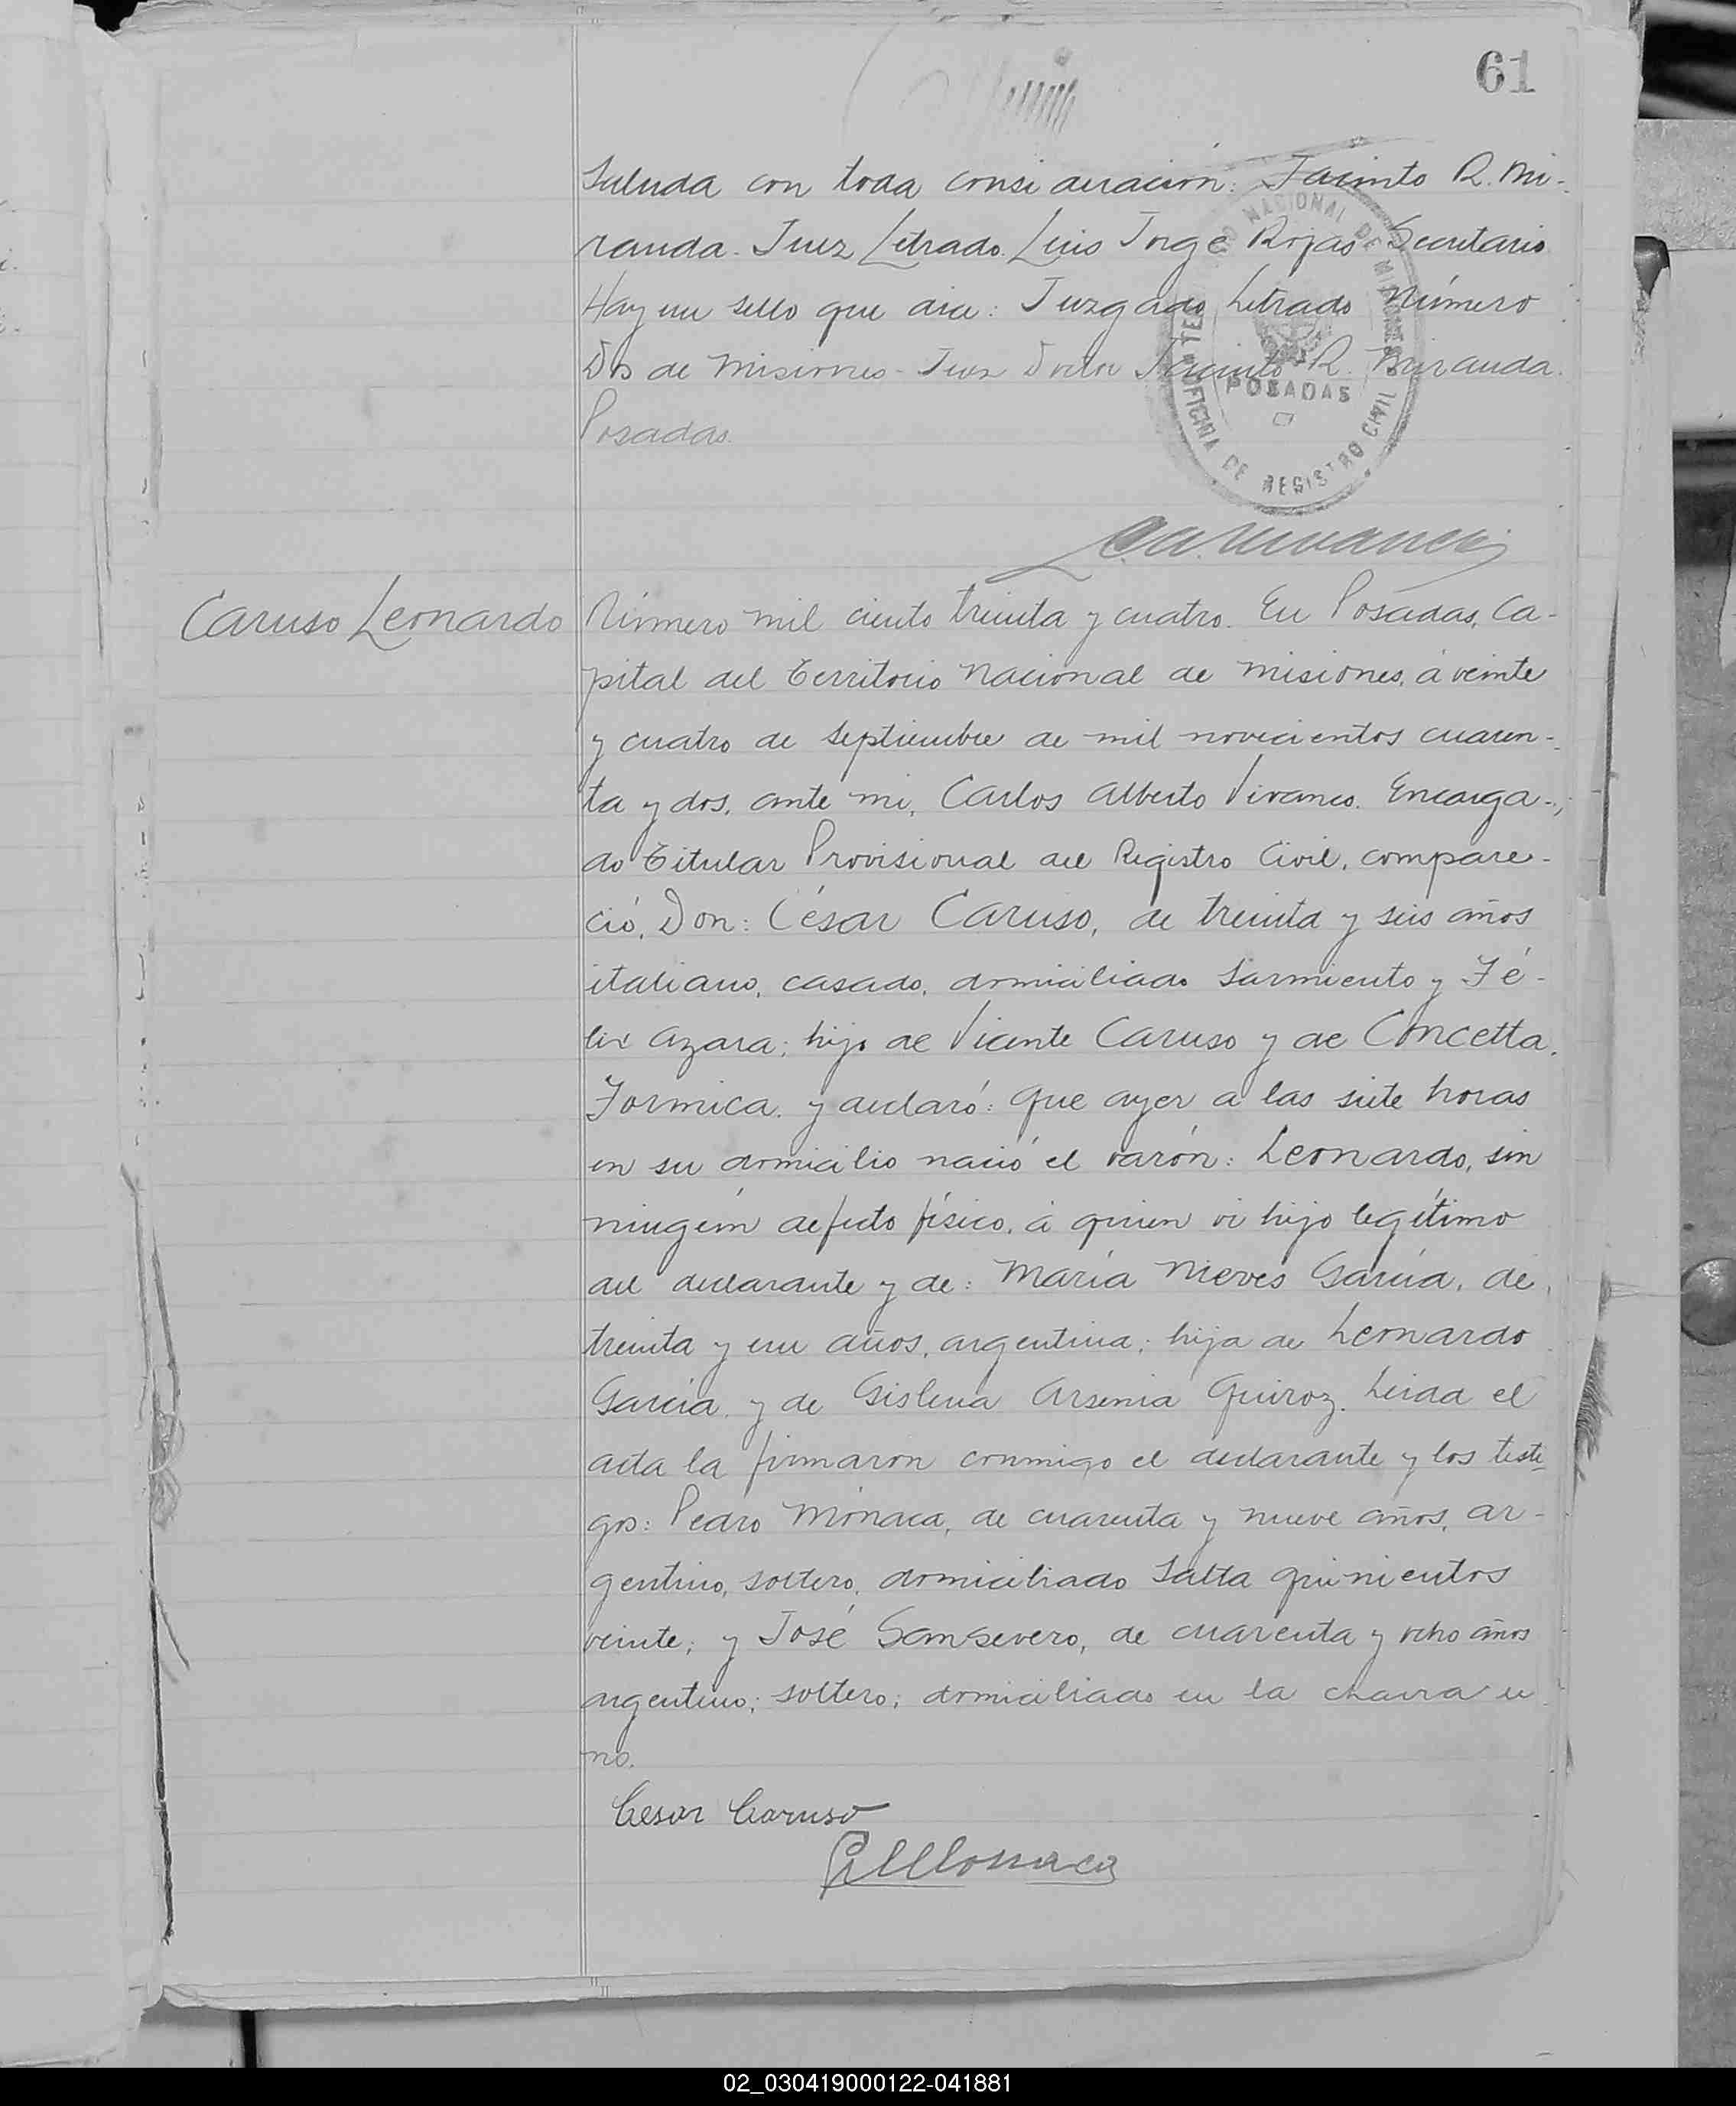 61
Saluda con toda consideración: Jacinto R. Mi-
randa. Juez Letrado. Luis Jorge Rojas Secretario
Hay un sello que dice: Juzgado Letrado Número
Dos de Misiones - Juez Doctor Jacinto R. Miranda.
Posadas.
NACIONAL DE MISIONES
POSADAS
OFICINA DE REGISTRO CIVIL
Caruso Leonardo
Número mil ciento treinta y cuatro. En Posadas, Ca-
pital del Territorio Nacional de Misiones, á veinte
y cuatro de septiembre de mil novecientos cuaren-
ta y dos, ante mi, Carlos Alberto Vivanco. Encarga-
do Titular Provisional del Registro Civil, compare-
ció, Don: César Caruso, de treinta y seis años
italiano, casado, domiciliado Sarmiento y Fé-
lix Azara; hijo de Vicente Caruso y de Concetta
Formica. y declaró: Que ayer a las siete horas
en su domicilio nació el varón: Leonardo, sin
ningún defecto físico, á quien vi hijo legítimo
del declarante y de: María Nieves García, de
treinta y un años, argentina; hija de Leonardo
García y de Gislena Arsenia Quiroz. Leida el
acta la firmaron conmigo el declarante y los testi
gos: Pedro Mónaca, de cuarenta y nueve años, ar-
gentino, soltero, domiciliado Salta quinientos
veinte; y José Sansevero, de cuarenta y ocho años
argentino; soltero; domiciliado en la chacra u
no.
Cesar Caruso
02_030419000122-041881